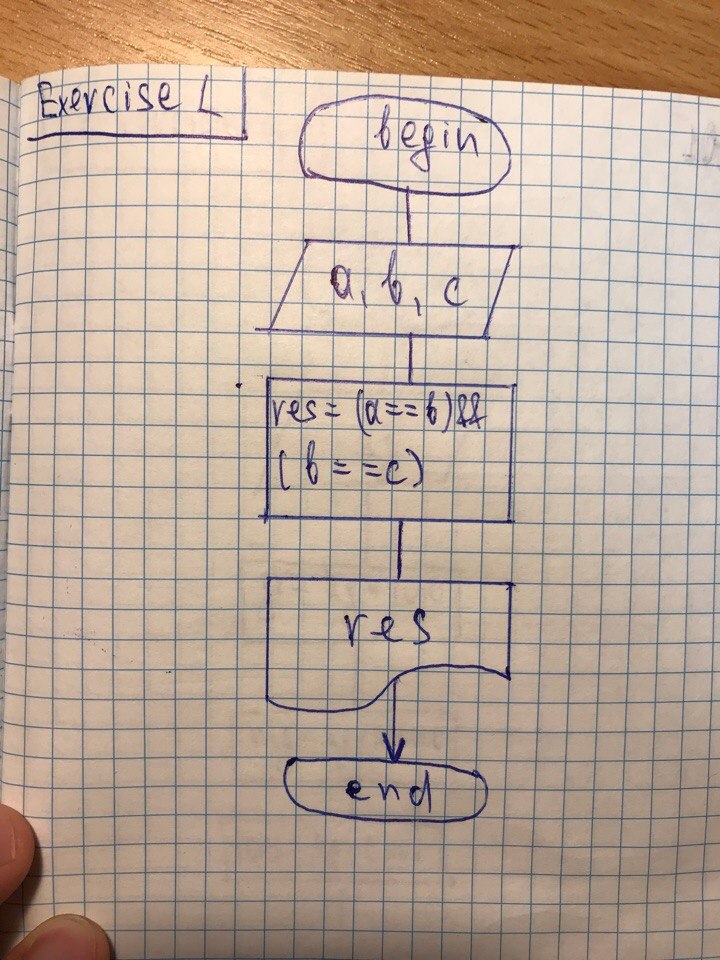 Exercise 1
begin
a, b, c
res = (a==b)&&
(b==c)
res
end